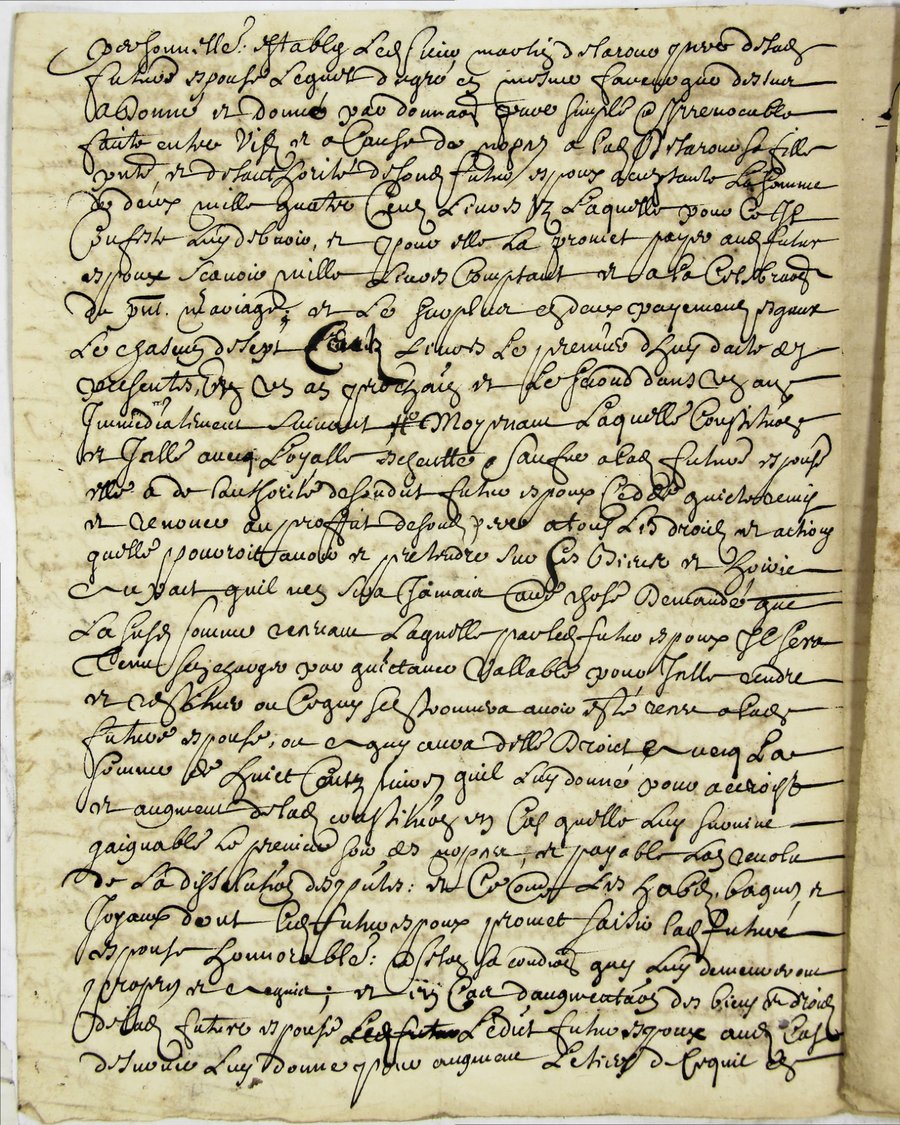 personnellem: estably led sieur martin delaroue pere delad
future espouse Lequel degré et mesme faveur que dessus
a donné et donne par donnaon pure simple et Irrevocable
faite entre Vifz et a Cause de nopces a lad Delaroue sa fille
pnte, et delauthorité desond futur espoux acceptante La somme
de deux mille quatre Cens Livres Laquelle pour ce Il
Confesse Luy debvoir, et pour elle La promet payer aud futur
espoux scavoir mille Livres Comptant et a la Celebraon
du pnt. mariage, et Le surplus en deux payemens esgaux
Le chascun de sept Cens Livres Le premier dhuy datte des
presentes en un an prochain et Le second dans un an
Immediatement suivant Moyenant Laquelle Constituon
et Jcelle avecq Loyalle escheutte sauf a lad future espouse
elle a de l'authorité desondit futur espoux cedé quicté remis
et renoncé au proffit desond pere a tous Les droicts et actions
quelle pouvoit avoir et pretendre sur ses Biens et hoirie
quil nen sera Jamais aue chose Demandé que
La susd somme venant Laquelle par led futur espoux Il sera
Tenu sen charger par quictance Vallable pour Jcelle rendre
et restituer ou Cequy se trouvera avoir esté receu a lad
future espouse, ou a quy aura delle Droict avecq La
somme de huict Cens livres quil Luy donne pour accroist
et augment delad constituon en Cas quelle Luy survive
gaignable Le premier soir des nopces, et payable Lan revolu
de La dissolution desptes: et Ce outre Les habits, bagues, et
Joyaux dont led futur espoux promet saisir lad future
espouse honnorablem: et selon sa condition quy Luy demeureront
propres et acquis; et en Cas d'augmentaon des biens et droicts
delad future espouse Ledit futur espoux aud Cas
de survie Luy donne pour augment Le tiers de Cequil